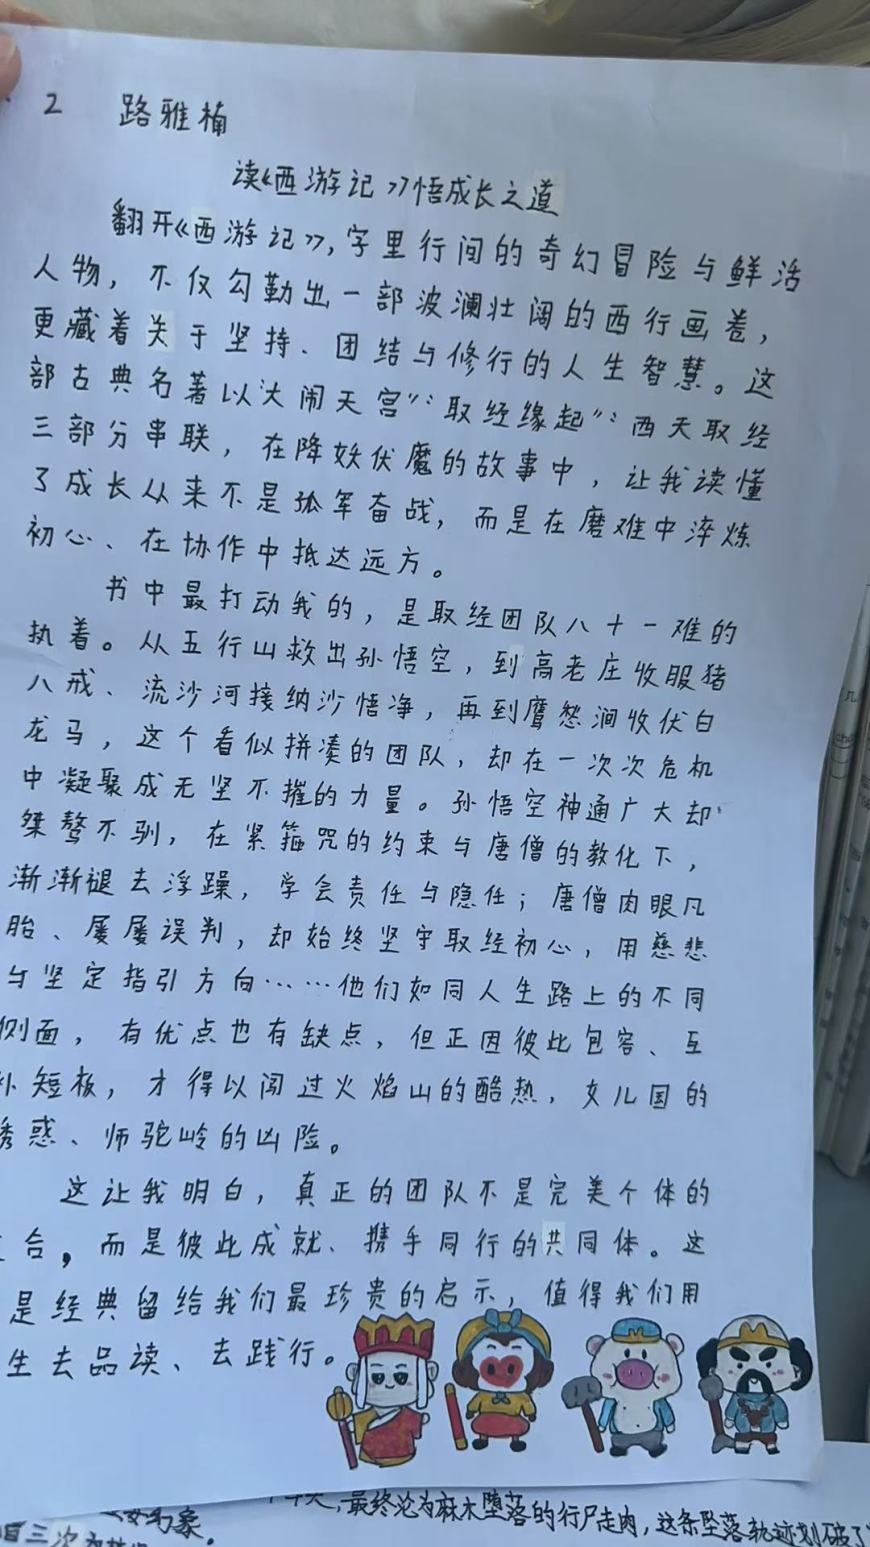 2 路雅楠
读《西游记》悟成长之道
翻开《西游记》,字里行间的奇幻冒险与鲜活
人物，不仅勾勒出一部波澜壮阔的西行画卷，
更藏着关于坚持、团结与修行的人生智慧。这
部古典名著以“大闹天宫”“取经缘起”“西天取经
三部分串联，在降妖伏魔的故事中，让我读懂
了成长从来不是孤军奋战，而是在磨难中淬炼
初心、在协作中抵达远方。
书中最打动我的，是取经团队八十一难的
执着。从五行山救出孙悟空，到高老庄收服猪
八戒、流沙河接纳沙悟净，再到鹰愁涧收伏白
龙马，这个看似拼凑的团队，却在一次次危机
中凝聚成无坚不摧的力量。孙悟空神通广大却
桀骜不驯，在紧箍咒的约束与唐僧的教化下，
渐渐褪去浮躁，学会责任与隐任；唐僧肉眼凡
胎、屡屡误判，却始终坚守取经初心，用慈悲
与坚定指引方向……他们如同人生路上的不同
侧面，有优点也有缺点，但正因彼此包容、互
补短板，才得以闯过火焰山的酷热，女儿国的
诱惑、师驼岭的凶险。
这让我明白，真正的团队不是完美个体的
合，而是彼此成就、携手同行的共同体。这
是经典留给我们最珍贵的启示，值得我们用
生去品读、去践行。
，最终沦为麻木堕落的行尸走肉，这条坠落轨迹划破了